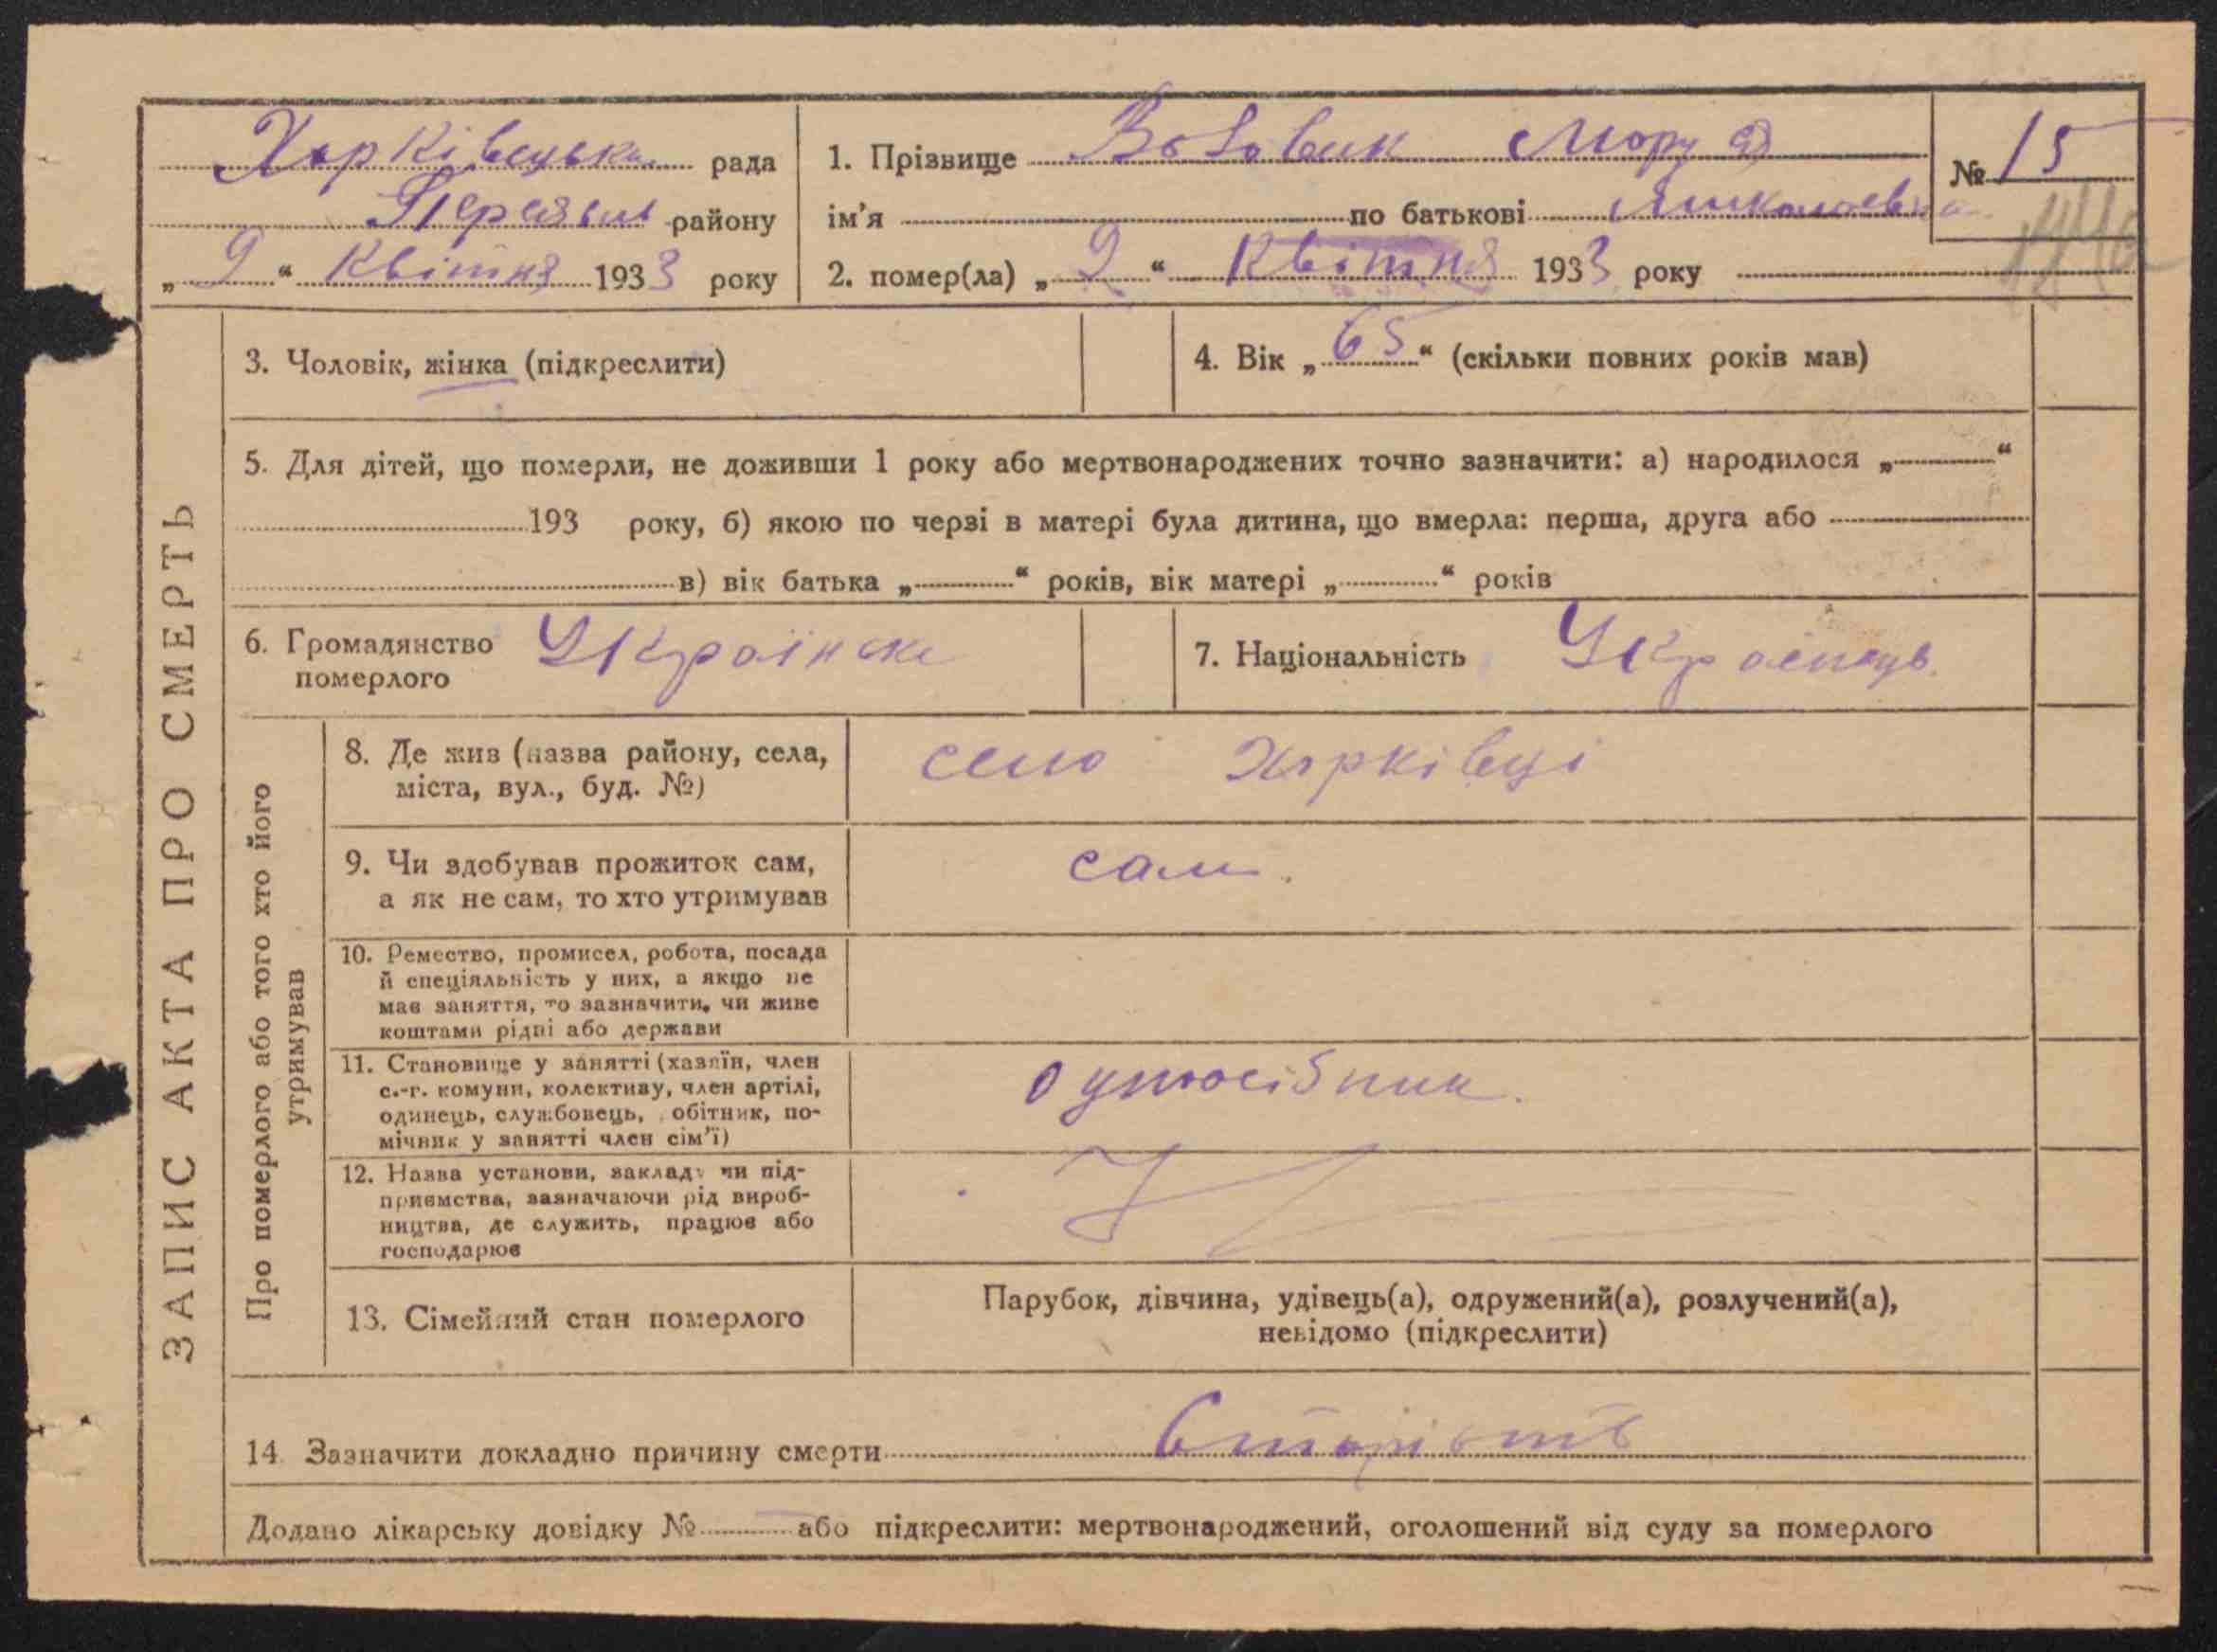 ЗАПИС АКТА ПРО СМЕРТЬ
Харківецька рада
Переясл району
„ 9 “ Квітня 1933 року
1. Прізвище Мору
ім'я по батькові Миколаевна
2. помер(ла) „ 2 “ Квітня 1933 року
№ 15
3. Чоловік, жінка (підкреслити)
4. Вік „ 65 “ (скільки повних років мав)
5. Для дітей, що померли, не доживши 1 року або мертвонароджених точно зазначити: а) народилося „ “
193 року, б) якою по черзі в матері була дитина, що вмерла: перша, друга або
в) вік батька „ “ років, вік матері „ “ років
6. Громадянство
померлого
Українске
7. Національність Українець
Про померлого або того хто його
утримував
8. Де жив (назва району, села,
міста, вул., буд. №)
село Харківці
9. Чи здобував прожиток сам,
а як не сам, то хто утримував
сам.
10. Ремество, промисел, робота, посада
й спеціяльність у них, а якщо не
має заняття, то зазначити, чи живе
коштами рідні або держави
11. Становище у занятті (хазяїн, член
с.-г. комуни, колективу, член артілі,
одинець, службовець, обітник, по-
мічник у занятті член сім'ї)
одноосібник.
12. Назва установи, закладу чи під-
приємства, зазначаючи рід вироб-
ництва, де служить, працює або
господарює
13. Сімейний стан померлого
Парубок, дівчина, удівець(а), одружений(а), розлучений(а),
невідомо (підкреслити)
14. Зазначити докладно причину смерти Старість
Додано лікарську довідку № або підкреслити: мертвонароджений, оголошений від суду за померлого